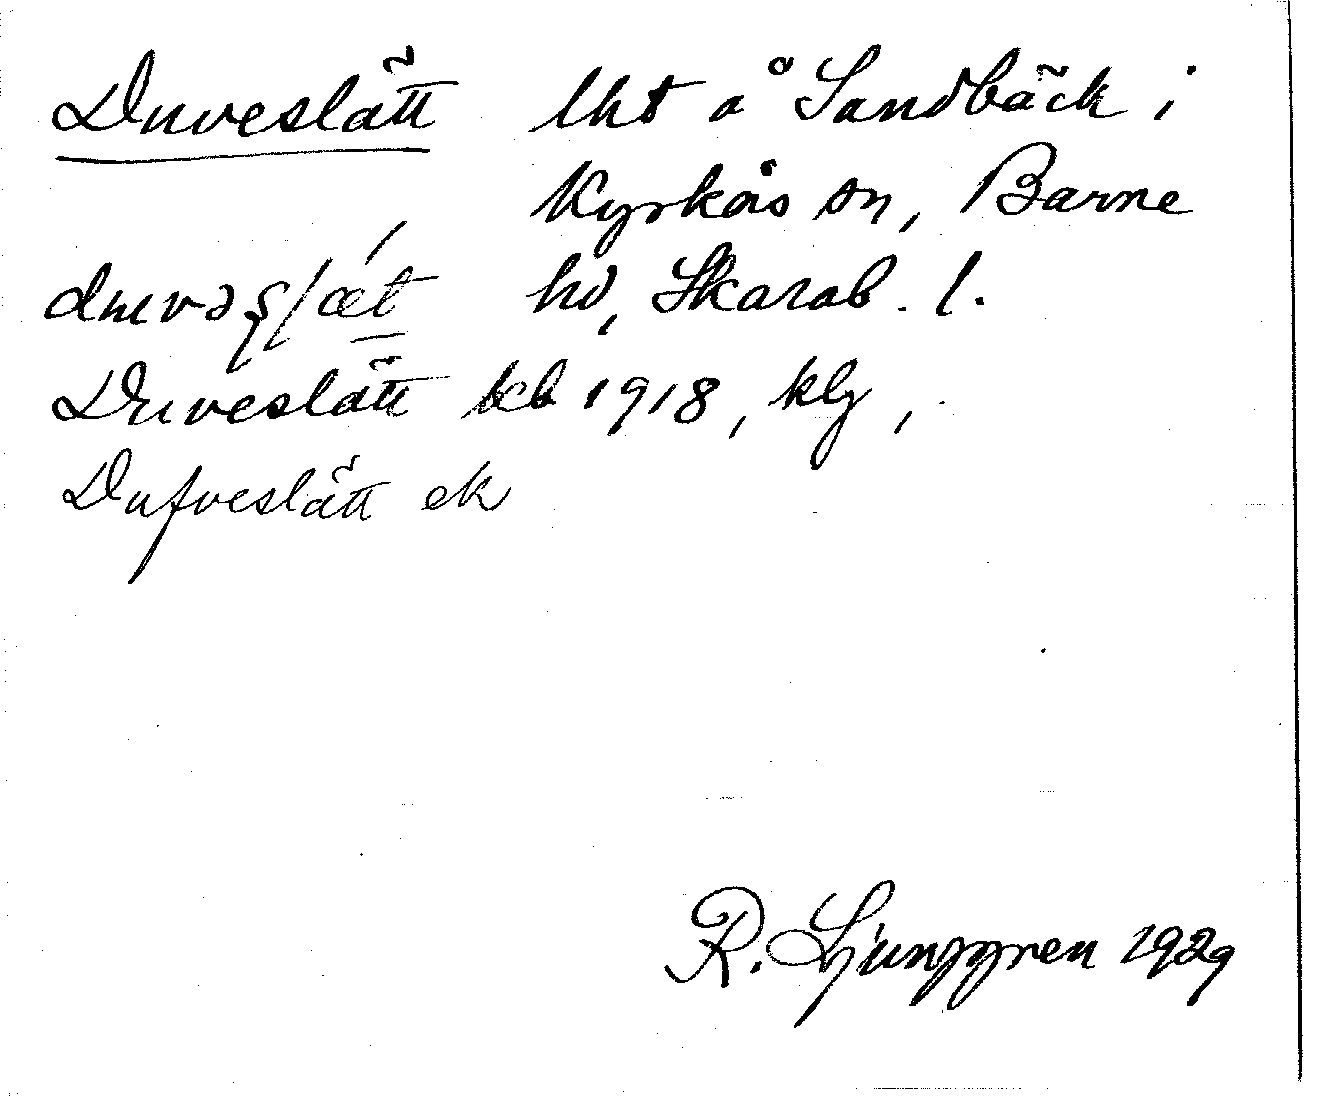 Duveslätt lht å Sandbäck i
Kyrkås sn, Barne
hd, Skarab. l.
Duveslätt kcb 1918, klg,
Dufveslätt ek
R. Ljunggren 1929